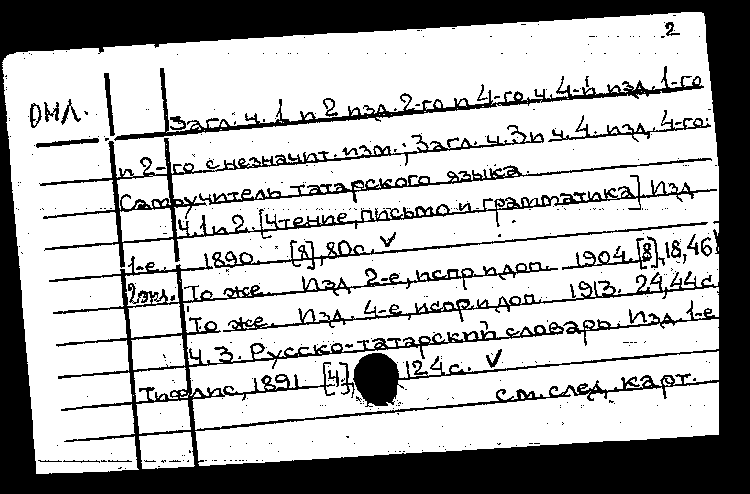 2
ОИЛ.
Загл. ч. 1 и 2 изд. 2-го и 4-го, ч. 4-й изд. 1-го
и 2-го с незначит. изм.; Загл. ч. 3 и ч. 4. изд. 4-го:
Самоучитель татарского языка.
ч. 1 и 2. [Чтение, письмо и грамматика] Изд
1-е. 1890. [8], 80с. V
2экз. То же. Изд. 2-е, испр. и доп. 1904. [8], 18, 46
То же. Изд. 4-е, испр. и доп. 1913. 24, 44 с.
Ч. 3. Русско-татарский словарь. Изд. 1-е
Тифлис, 1891. [4], 124 с. V
см. след. карт.